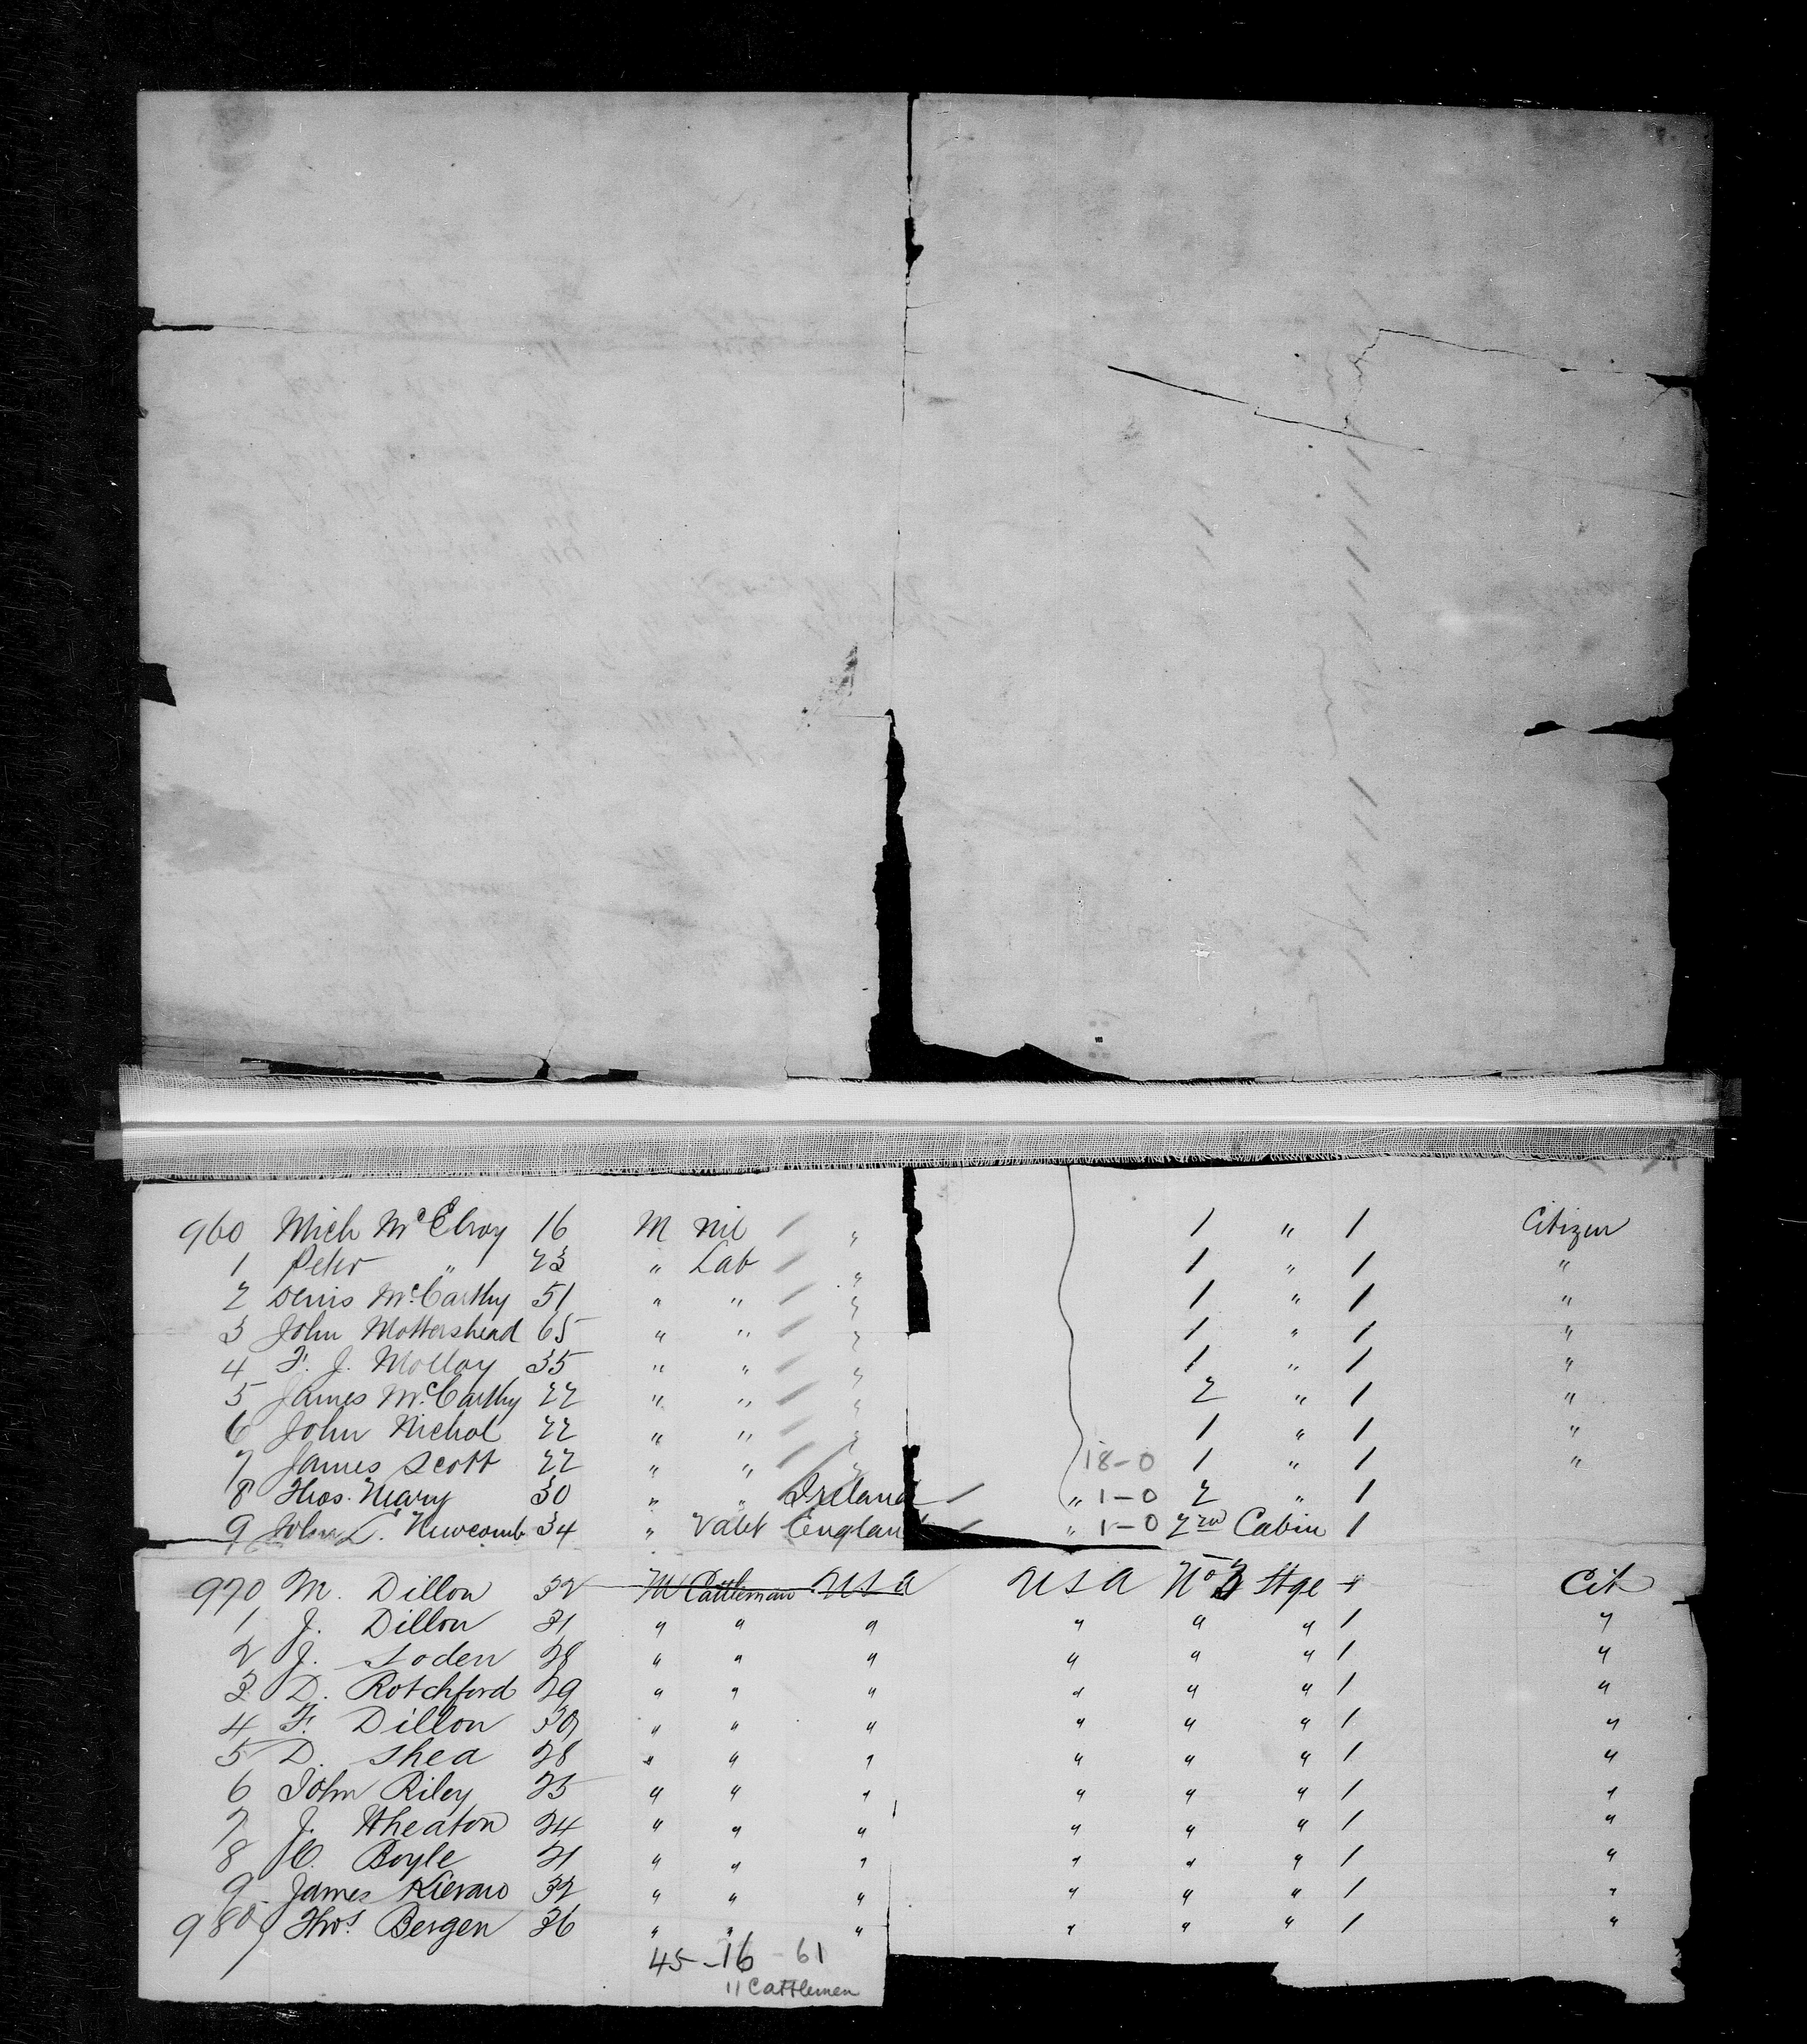 960 Mich McElroy 16 M Nil / " 1 " 1 Citizen
1 Peter " 23 " Lab / " 1 " 1 "
2 Denis McCarthy 51 " " / " 1 " 1 "
3 John Mottershead 65 " " / " 1 " 1 "
4 F. J. Molloy 35 " " / " 1 " 1 "
5 James McCarthy 22 " " / " 2 " 1 "
6 John Nichol 22 " " / " 1 " 1 "
7 James Scott 22 " " / " 18-0 1 " 1 "
8 Thos. Neary 30 " " Ireland / " 1-0 2 " 1
9 John L. Newcomb 34 " Valet England / " 1-0 2nd Cabin 1
970 M. Dillon 32 M Cattleman USA USA No 3 Stge 1 Cit
1 J. Dillon 31 " " " " " " 1 "
2 J. Soden 28 " " " " " " 1 "
3 D. Rotchford 29 " " " " " " 1 "
4 F. Dillon 30 " " " " " " 1 "
5 D. Shea 28 " " " " " " 1 "
6 John Riley 25 " " " " " " 1 "
7 J. Wheaton 24 " " " " " " 1 "
8 C. Boyle 21 " " " " " " 1 "
9 James 32 " " " " " " 1 "
980 Thos. Bergen 36 " " " " " " 1 "
45-16-61
11 Cattlemen